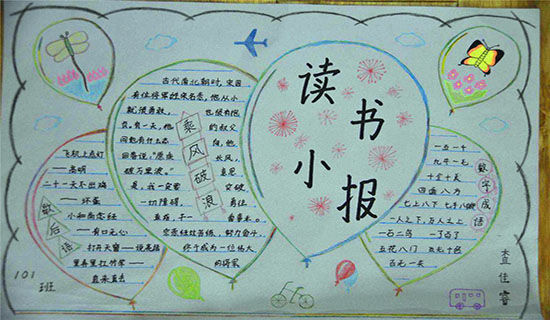 古代南北朝时,宋国
有位将军姓宗名悫,他从小
就很勇敢,也很有抱
负。有一天,他的叔父
问他有什么志向,他
回答说:“愿乘长风,
破万里浪。”意思
是,我一定要突破
一切障碍,勇往
直前,干一番事业。
宗悫经过苦练,努力奋斗,
终于成为一位伟大
的将军
乘风破浪
读书
小报
飞机上点灯
——高明
二十一天不出鸡
——坏蛋
小和尚念经
——有口无心
打开天窗——说亮话
里弄里扛竹竿——
直来直去
歇后语
一五一十
九牛一毛
十全十美
四面八方
七上八下 七手八脚
一人之下,万人之上
一石二鸟 一了百了
五花八门 五光十色
百无一失
数字成语
101
班
查佳睿